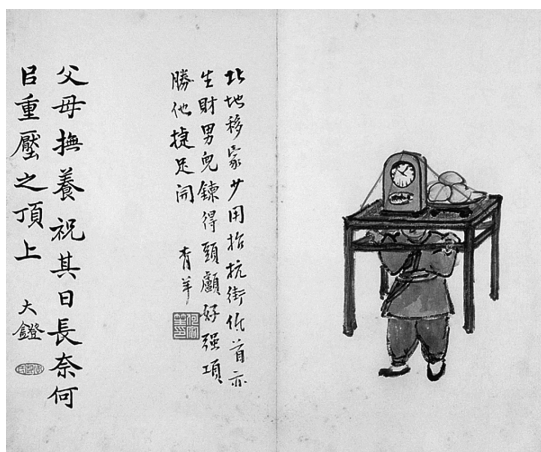 北地移家少用抬抗街低首亦
生財男兒鍊得頭顱好強項
勝他捷足開 青羊
父母撫養祝其日長奈何
㠯重壓之頂上 大鐙